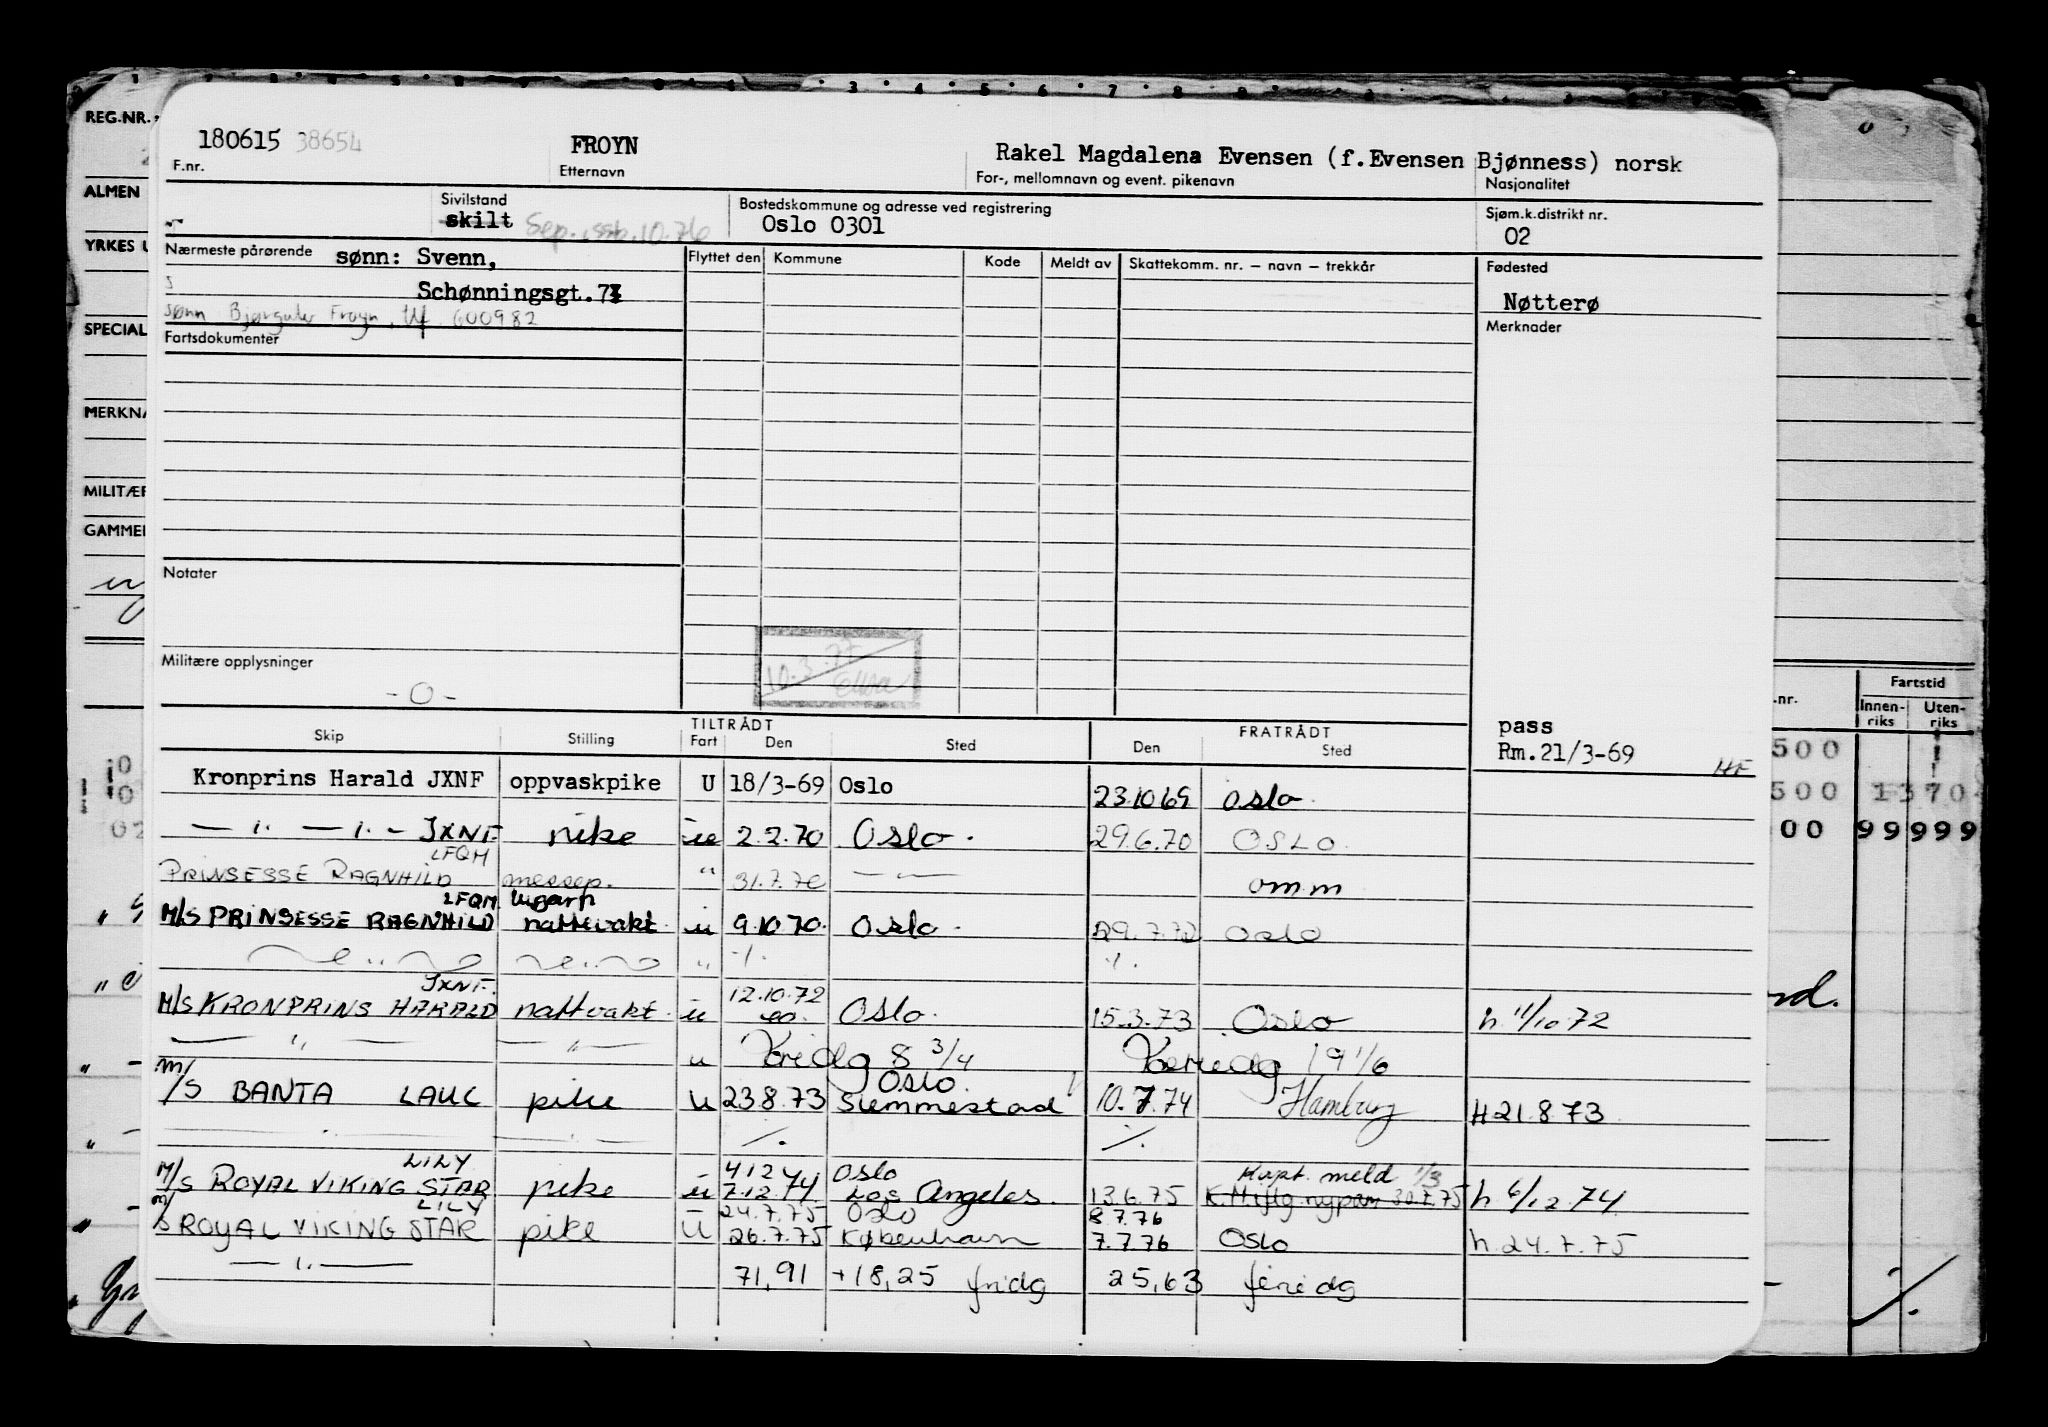 REG.NR.
180615 38654 FROYN Rakel Magdalena Evensen (f.Evensen Bjønness) norsk
F.nr. Etternavn For-, mellomnavn og event. pikenavn Nasjonalitet
ALMEN
Sivilstand Bostedskommune og adresse ved registrering Sjøm.k.distrikt nr.
skilt Sep. 10.76 Oslo 0301 02
YRKES
Nærmeste pårørende sønn: Svenn, Flyttet den Kommune Kode Meldt av Skattekomm. nr. — navn — trekkår Fødested
Schønningsgt. Nøtterø
sønn Froyn, 600982
SPECIAL Fartsdokumenter Merknader
MERKNA
MILITÆR
GAMMEL
Notater
10.3.77
Militære opplysninger
-0-
Fartstid
.nr. Innen-riks Uten-riks
TILTRÅDT FRATRÅDT pass
Skip Stilling Fart Den Sted Den Sted Rm.21/3-69 HF
500
Kronprins Harald JXNF oppvaskpike U 18/3-69 Oslo 23.10 69 Oslo. 500 1370
— ,, — ,, — JXNF pike u 2.2.70 Oslo. 29.6.70 OSLO. 00 99999
LFQM
PRINSESSE RAGNHILD messep. " 31.7.70 — " — omm
LFQM
M/S PRINSESSE RAGNHILD nattevakt u 9.10 70. Oslo. 29.7.72 Oslo
" ./. ./.
JXNF. 12.10.72
M/S KRONPRINS HARALD nattvakt u Oslo. 15.3.73 Oslo h. 11/10 72
— " — — " — u 8 3/4 19 1/6
Oslo.
M/S BANTA LAUC pike u 23.8.73 Slemmestad 10.7.74 Hamburg H 21.8 73
— " — — " — ./. ./.
LILY 4 12 74 Oslo Kapt. meld 1/3
M/S ROYAL VIKING STAR pike u 7.12.74 Los Angeles. 13.6.75 30.7.75 h 6/12 74
LILY 24.7.75 Oslo 8.7.76
M/S ROYAL VIKING STAR pike U 26.7.75 København 7.7.76 Oslo h. 24.7.75
— ,, — 71,91 +18,25 fridg 25,63 feriedg